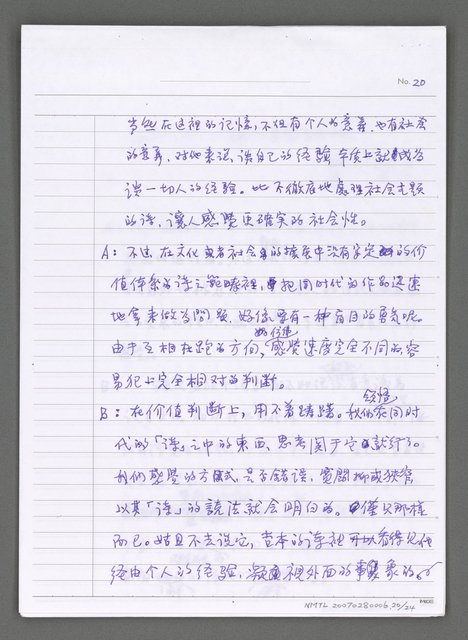 No. 20
当然在這裡的记憶，不但有个人的意義，也有社会
的意義。对他来说，談自己的経験本质上就成为
談一切人的経験。比不徹底地處理社会主題
的诗，讓人感覺更確实的社会性。
A：不过，在文化或者社会的擴展中没有穿定的价
值体系的诗之範疇裡，把同时代的作品迅速
地拿来做为問題，好像要有一种盲目的勇氣呢。
由于互相在跑的方向，感覺速度完全不同的容
易犯上完全相对的判断。
B：在价值判断上，用不着踌躇。我们家同时
代的「诗」之中的東西，思考関于它就行。
我们感覺的方式，是否错误，寛闊抑或狹窄
以其「诗」的読法就会明白的。僅只那樣
而已。姑且不去说它，在本的诗裡可以看得見他
経由个人的経験，凝視外面的事象的
NMTL 20070280006, 20/24